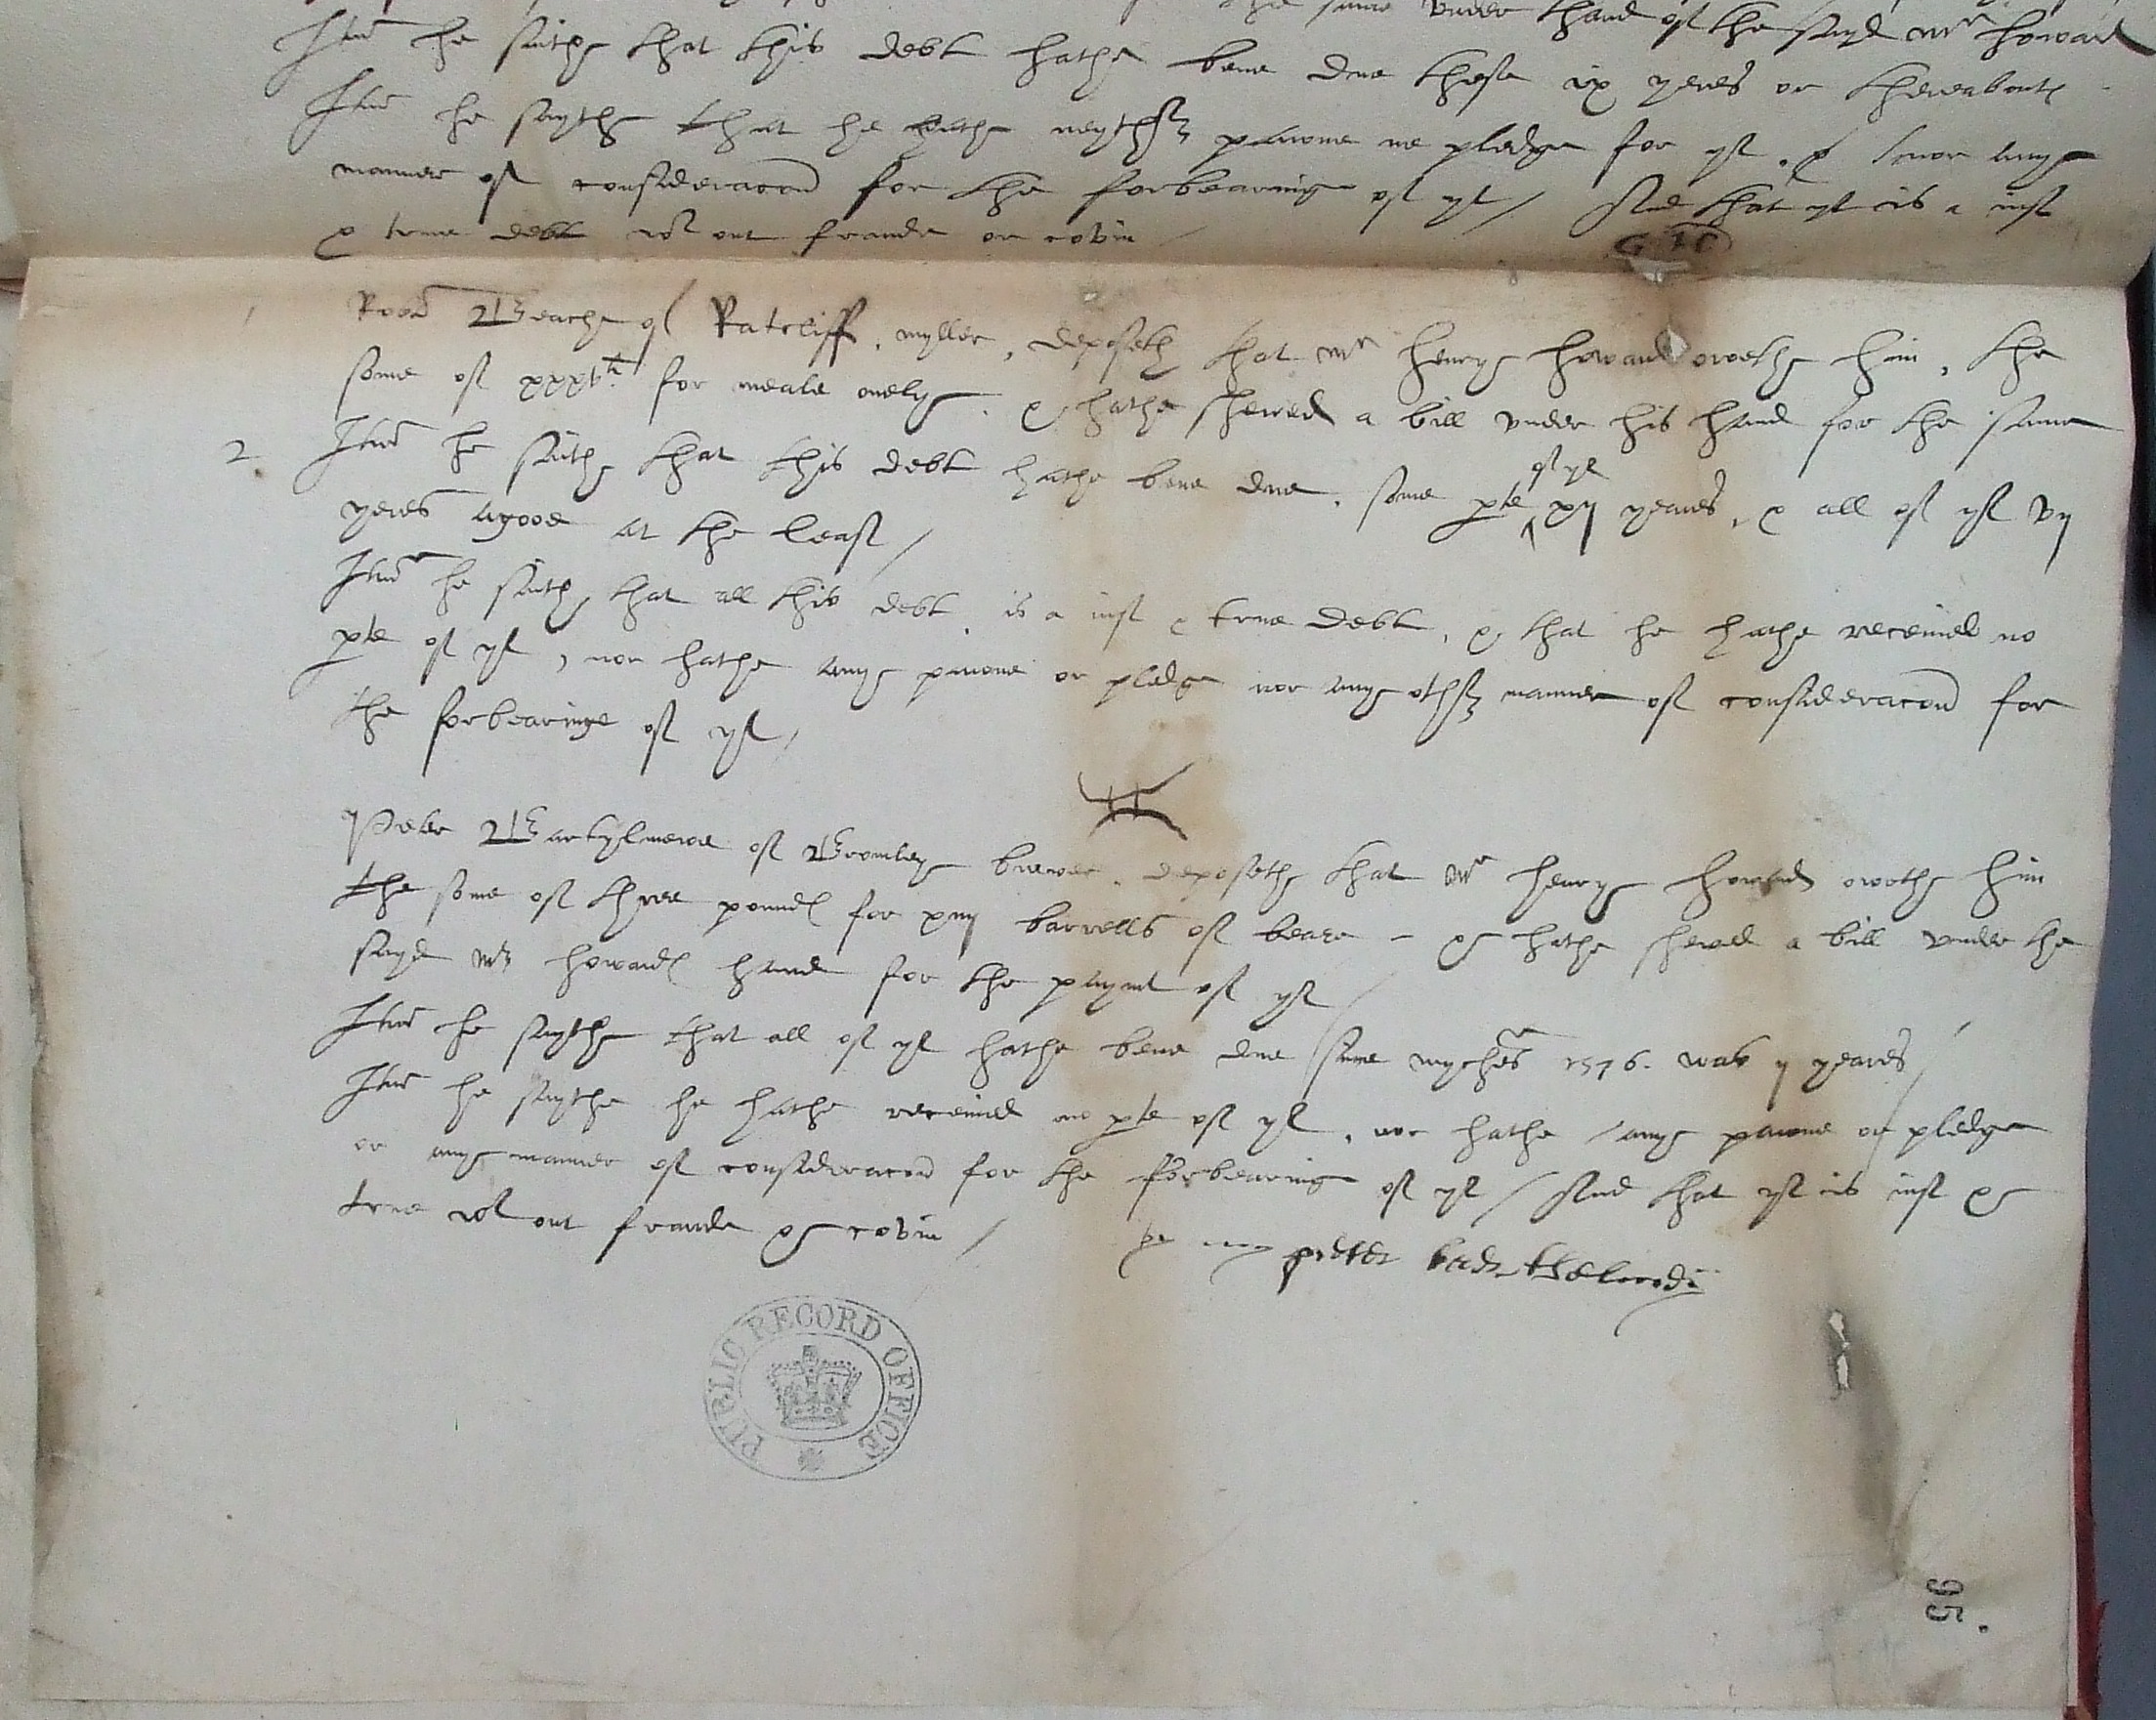 same under thand of the sayd Mr howard
Itm he saith that this debt hathe bene due these ix yeres or thereabouts
Itm he saythe that he hathe neyther pawne ne pledge for yt. & nor anye
manner of consideracon for the forbearinge of yt / And that yt is a iust
& true debt wt out fraude or covin /
1 Beache of Ratcliff, myller, deposeth that Mr Henry howard owethe him, the
some of xxxvli for meale onelye. & hathe shewed a bill under his hand for the same
2 Itm he saith that this debt hathe bene due, some pte of yt xij yeares, & all of yt vij
yeres agooe at the least /
Itm he saith that all this debt is a iust & true debt, & that he hathe receiued no
pte of yt, nor hathe anye pawne or pledge nor anye other manner of consideracon for
the forbearinge of yt /
Peter Bartylmewe of Bromley brewer, deposethe that Mr Henry howard owethe him
the some of three pounds for xiij barrells of beare - & hathe shewed a bill under the
sayd Mr howards hand for the paymt of yt /
Itm he saythe that all of yt hathe bene due sine myches 1576. was ij yeares /
Itm he saythe he hathe receiued no pte of yt, nor hathe anye pawne or pledge
or anye manner of consideracon for the forbearinge of yt / And that yt is iust &
true wt out fraude & covin /
pieter
PUBLIC RECORD OFFICE
95